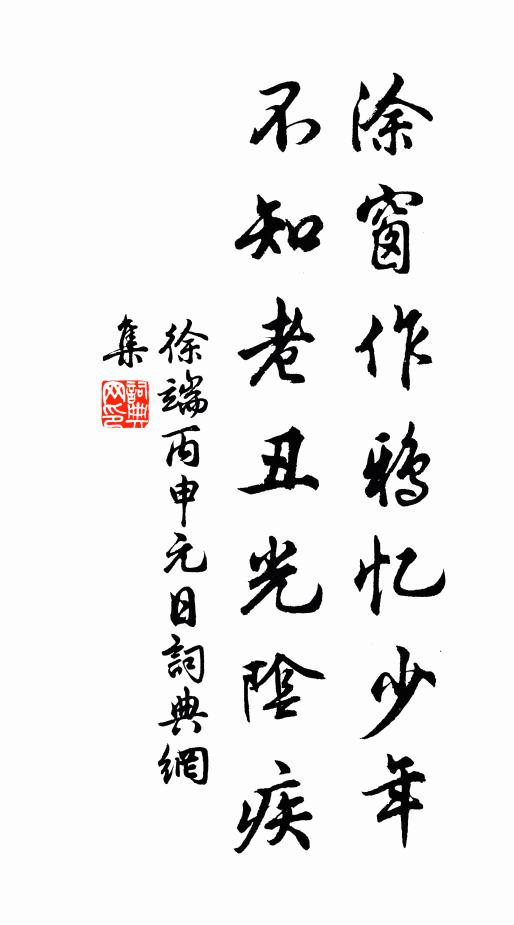 涂窗作鸦忆少年
不知老丑光陰疾
徐端丙申元日詞典網
集
詞典网印